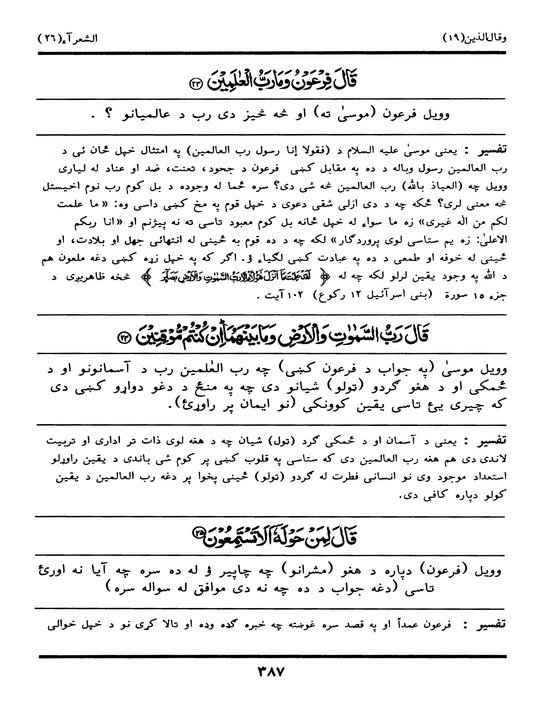 وقال‌الذين(١٩)
الشعرآء(٢٦)
قَالَ فِرْعَوْنُ وَمَا رَبُّ الْعٰلَمِيْنَ ﴿٢٣﴾
وويل فرعون (موسىٰ ته) او څه څيز دى رب د عالميانو ؟ .
تفسير : يعنى موسىٰ عليه السلام د (فقولا إنا رسول رب العالمين) په امتثال خپل ځان ئى د
رب العالمين رسول وباله د ده په مقابل کښى فرعون د جحود، تعنت، ضد او عناد له لياري
وويل چه (العياذ بالله) رب العالمين څه شى دى؟ سره ځما له وجوده د بل کوم رب نوم اخيستل
څه معنى لرى؟ ځکه چه د دى ازلى شقى دعوى د خپل قوم په مخ کښى داسى وه: «ما علمت
لكم من اله غيرى» زه ما سواء له خپل ځانه بل کوم معبود تاسى ته نه پيژنم او «انا ربكم
الاعلىٰ: زه يم ستاسى لوى پروردګار» لکه چه د ده قوم به ځينى له انتهائى جهل او بلادت، او
ځينى له خوفه او طمعى د ده په عبادت کښى لګياء ؤ. اګر که په خپل زړه کښى دغه ملعون هم
د الله په وجود يقين لرلو لکه چه له ﴿ لَقَدْ عَلِمْتَ مَآ اَنْزَلَ هٰٓؤُلَآءِ اِلَّا رَبُّ السَّمٰوٰتِ وَالْاَرْضِ بَصَآئِرَ ﴾ څخه ظاهريږى د
جزء ١٥ سورة (بنى اسرآئيل ١٢ رکوع) ١٠٢ آيت .
قَالَ رَبُّ السَّمٰوٰتِ وَالْاَرْضِ وَمَا بَيْنَهُمَا اِنْ كُنْتُمْ مُّوْقِنِيْنَ ﴿٢٤﴾
وويل موسىٰ (په جواب د فرعون کښى) چه رب العٰلمين رب د آسمانونو او د
ځمکى او د هغو ګردو (ټولو) شيانو دى چه په منځ د دغو دواړو کښى دى
که چيرى يئ تاسى يقين کوونکى (نو ايمان پر راوړئ).
تفسير : يعنى د آسمان او د ځمکى ګرد (ټول) شيان چه د هغه لوى ذات تر ادارى او تربيت
لاندى دى هم هغه رب العالمين دى که ستاسى په قلوب کښى پر کوم شى باندى د يقين راوړلو
استعداد موجود وى نو انسانى فطرت له ګردو (ټولو) ځينى پخوا پر دغه رب العالمين د يقين
کولو دپاره کافى دى.
قَالَ لِمَنْ حَوْلَهٗٓ اَلَا تَسْتَمِعُوْنَ ﴿٢٥﴾
وويل (فرعون) دپاره د هغو (مشرانو) چه چاپير ؤ له ده سره چه آيا نه اورئ
تاسى (دغه جواب د ده چه نه دى موافق له سواله سره)
تفسير : فرعون عمداً او په قصد سره غوښته چه خبره ګډه وډه او تالا کړى نو د خپل خوالى
٣٨٧